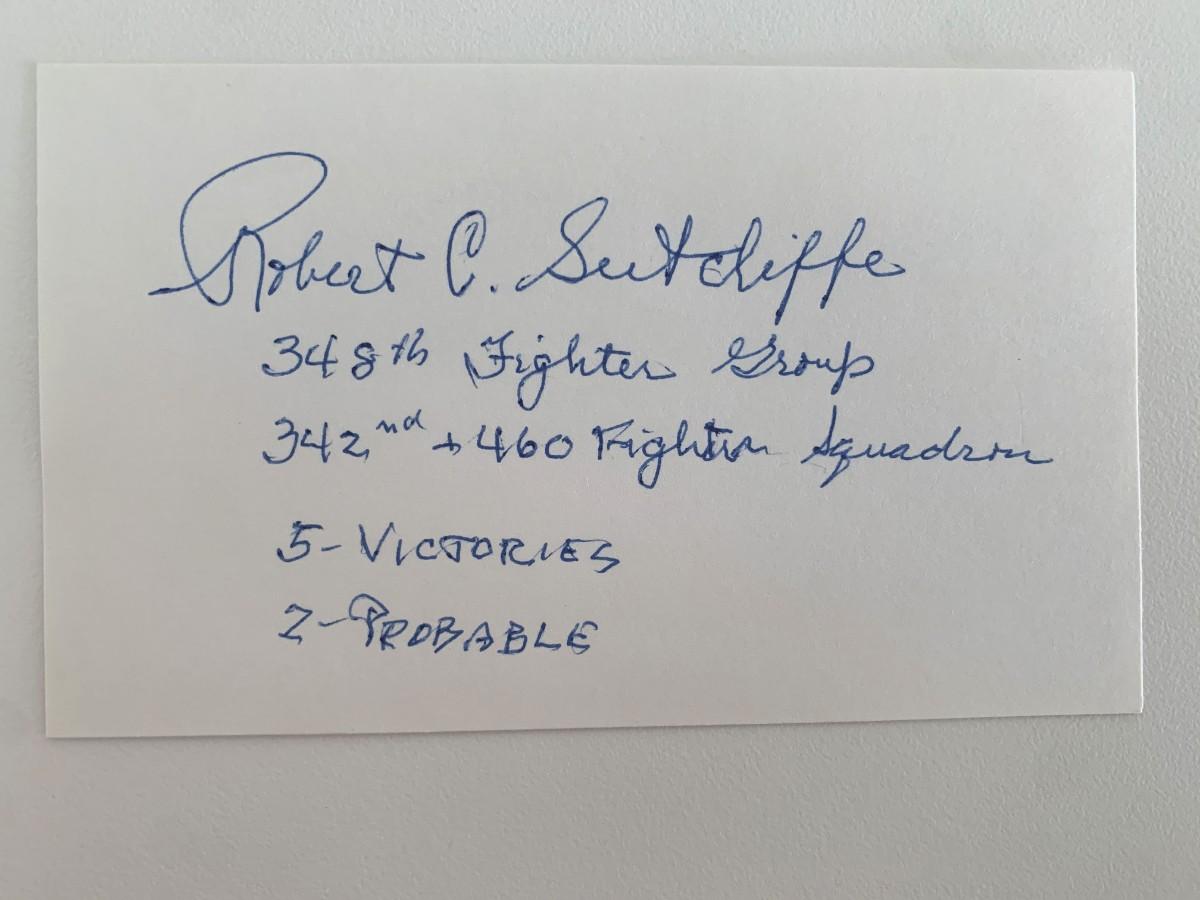 Robert C. Sutcliffe
348th Fighter Group
342nd + 460 Fighter Squadron
5-VICTORIES
2-PROBABLE